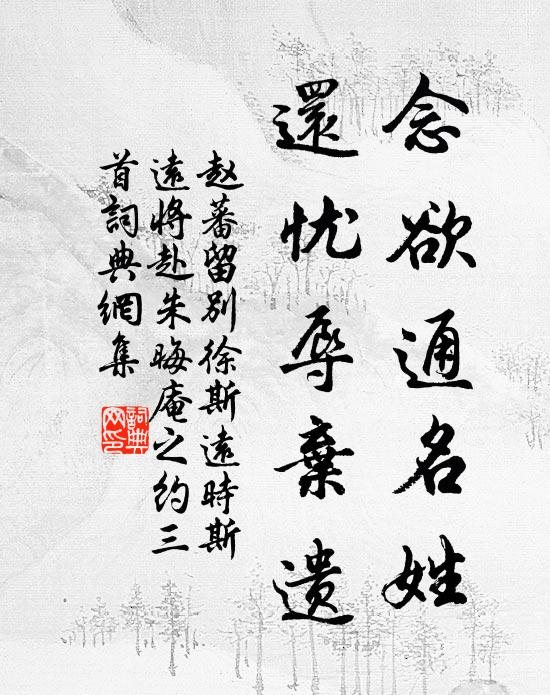 念欲通名姓
還忧辱棄遗
赵蕃留别徐斯遠時斯
遠將赴朱晦庵之約三
首詞典網集
詞典
网印